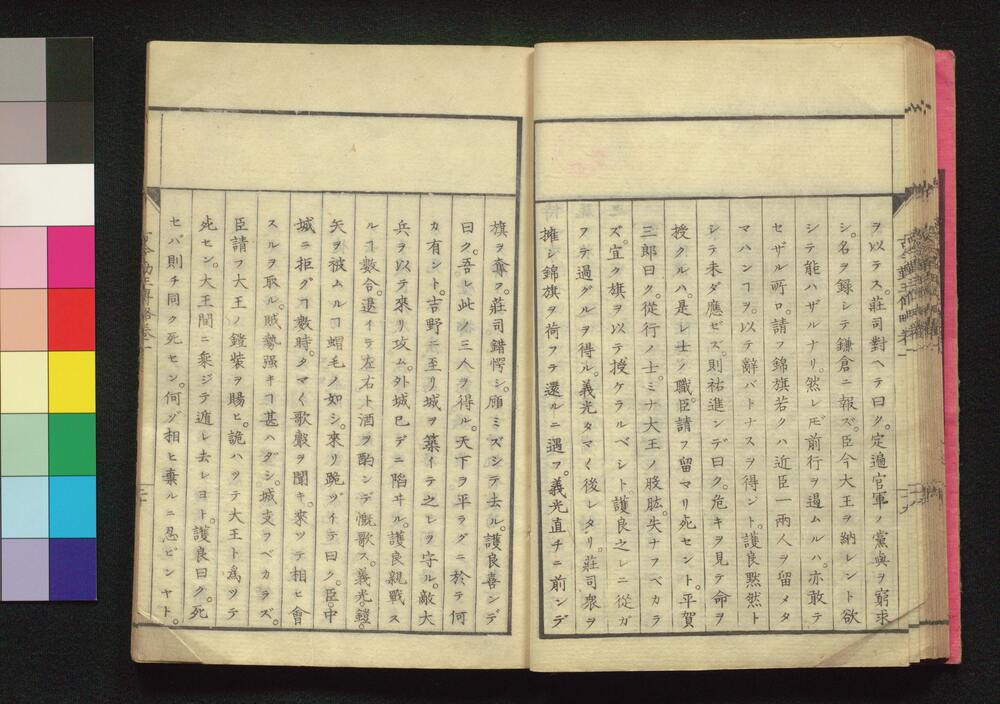 ヲ以テス。莊司對ヘテ曰ク。定遍官軍ノ黨與ヲ窮求
シ。名ヲ錄シテ鎌倉ニ報ズ。臣今大王ヲ納レント欲
シテ能ハザルナリ。然レ𪜈前行ヲ遏ムルハ。亦敢テ
セザル所ロ。請フ錦旗若クハ近臣一兩人ヲ留メタ
マハンヿヲ。以テ辭バトナスヲ得ント。護良黙然ト
シテ未ダ應ゼズ。則祐進ンデ曰ク。危キヲ見テ命ヲ
授クルハ。是レ士ノ職。臣請フ留マリ死セント。平賀
三郎曰ク。從行ノ士。ミナ大王ノ股肱。失ナフベカラ
ズ。宜ク旗ヲ以テ授ケラルベシト。護良之レニ從ガ
フテ過グルヲ得ル。義光タマ〱後レタリ。莊司衆ヲ
擁シ錦旗ヲ荷フテ還ルニ遇フ。義光直チニ前ンデ
旗ヲ奪フ。莊司錯愕シ。顧ミズシテ去ル。護良喜ンデ
曰ク。吾レ此ノ三人ヲ得ル。天下ヲ平ラグニ於テ何
カ有シト。吉野ニ至リ城ヲ築イテ之レヲ守ル。敵大
兵ヲ以テ來リ攻ム。外城已デニ陷ヰル。護良親戰ス
ルヿ數合。退イテ左右ト酒ヲ酌ンデ慨歌ス。義光。鎧。
矢ヲ被ムルヿ蝟毛ノ如シ。來リ跪ヅイテ曰ク。臣。中
城ニ拒グヿ數時。タマ〱歌聲ヲ聞キ。來ツテ相ヒ會
スルヲ取ル。賊勢强キヿ甚ハダシ。城支フベカラズ。
臣請フ大王ノ鎧裝ヲ賜ヒ。詭ハツテ大王ト爲ツテ
死セン。大王間ニ乘ジテ遁レ去レヨト。護良曰ク。死
セバ則チ同ク死セン。何ゾ相ヒ棄ルニ忍ビンヤト。